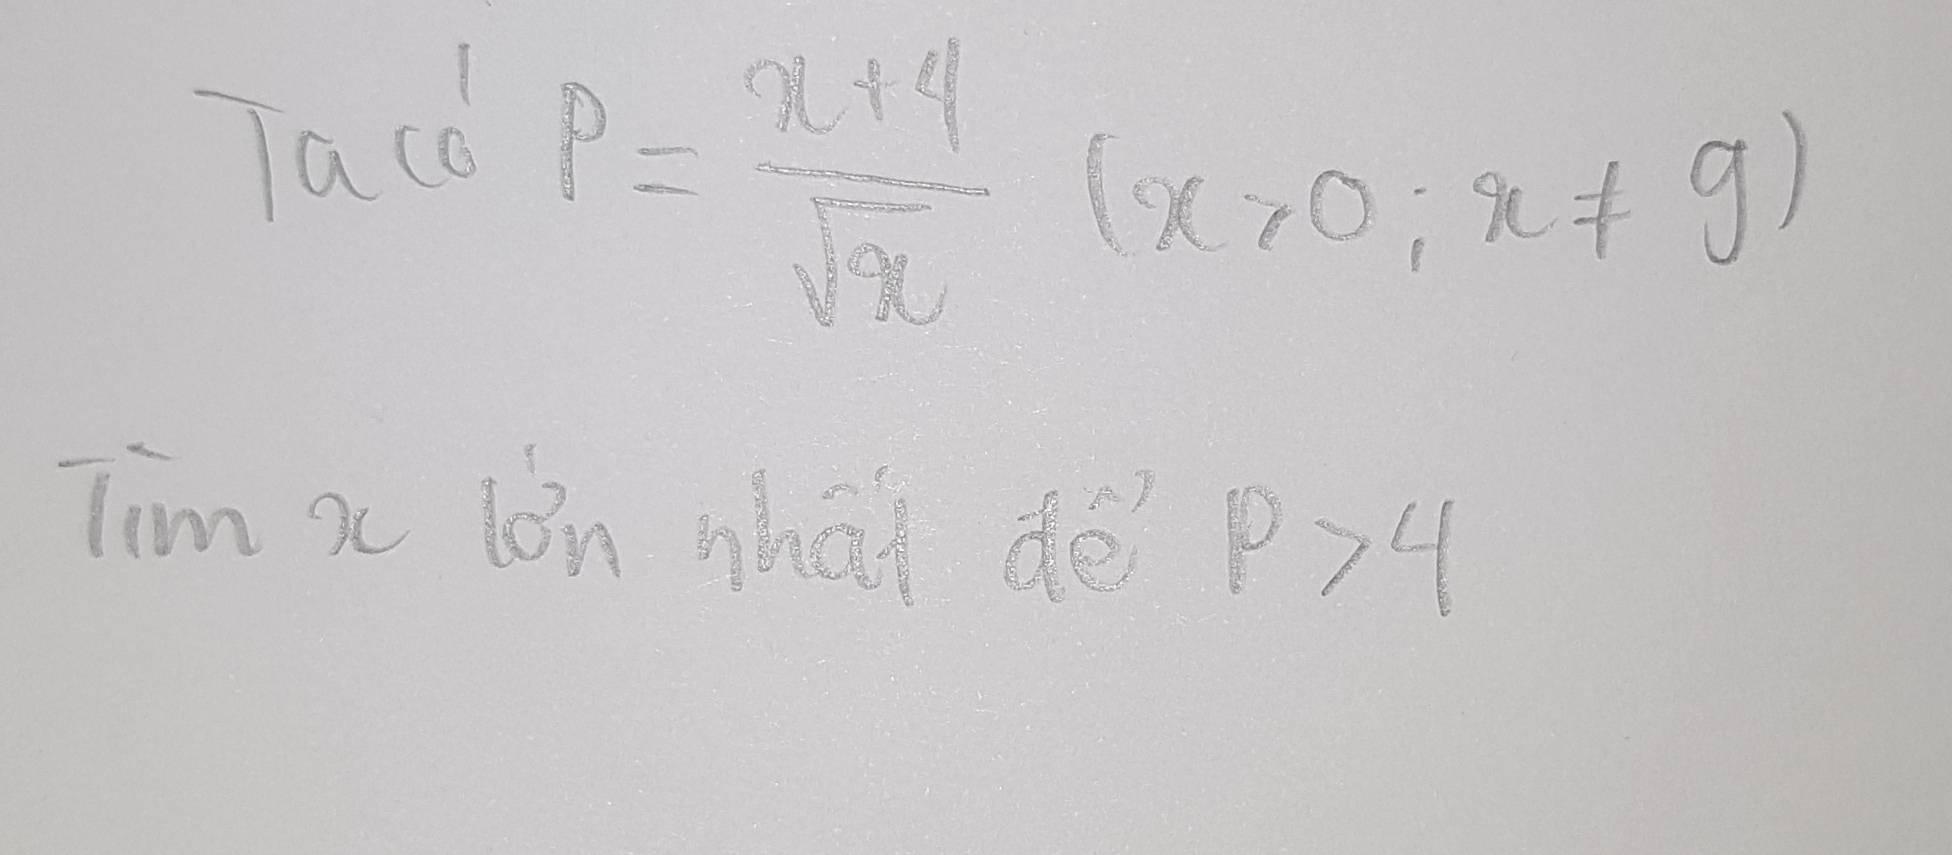 Ta có P = \frac{x+4}{\sqrt{x}} (x>0; x ≠ 9)
Tìm x lớn nhất để P > 4